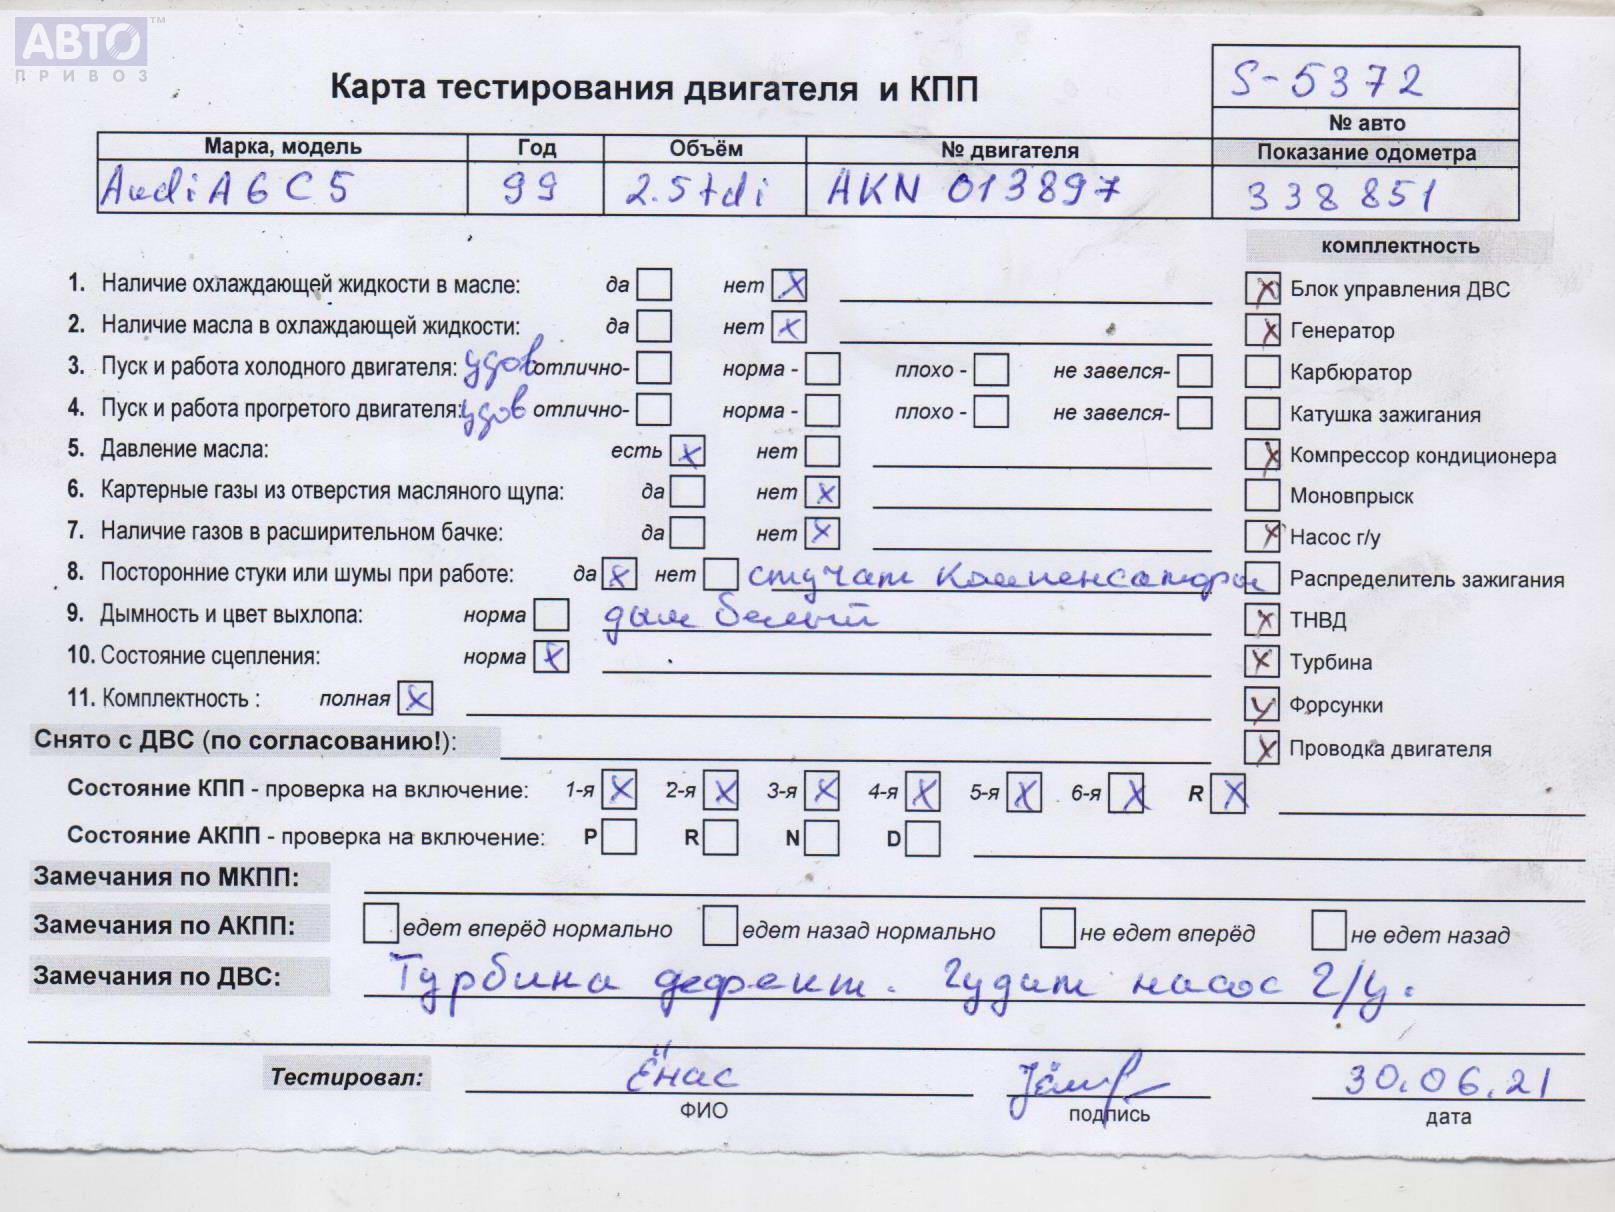 АВТО™
ПРИВОЗ
Карта тестирования двигателя и КПП
S-5372
№ авто
Марка, модель Год Объём № двигателя Показание одометра
Audi A6 C5 99 2.5tdi AKN 013897 338851
комплектность
1. Наличие охлаждающей жидкости в масле: да нет x
x Блок управления ДВС
2. Наличие масла в охлаждающей жидкости: да нет x
x Генератор
3. Пуск и работа холодного двигателя: удов отлично- норма - плохо - не завелся-
Карбюратор
4. Пуск и работа прогретого двигателя: удов отлично- норма - плохо - не завелся-
Катушка зажигания
5. Давление масла: есть x нет
x Компрессор кондиционера
6. Картерные газы из отверстия масляного щупа: да нет x
Моновпрыск
7. Наличие газов в расширительном бачке: да нет x
x Насос г/у
8. Посторонние стуки или шумы при работе: да x нет стучат компенсаторы
Распределитель зажигания
9. Дымность и цвет выхлопа: норма дым белый
x ТНВД
10. Состояние сцепления: норма x
x Турбина
11. Комплектность : полная x
x Форсунки
Снято с ДВС (по согласованию!):
x Проводка двигателя
Состояние КПП - проверка на включение: 1-я x 2-я x 3-я x 4-я x 5-я x 6-я x R x
Состояние АКПП - проверка на включение: P R N D
Замечания по МКПП:
Замечания по АКПП: едет вперёд нормально едет назад нормально не едет вперёд не едет назад
Замечания по ДВС: Турбина дефект. Гудит насос г/у.
Тестировал: Ёнас 30.06.21
ФИО подпись дата